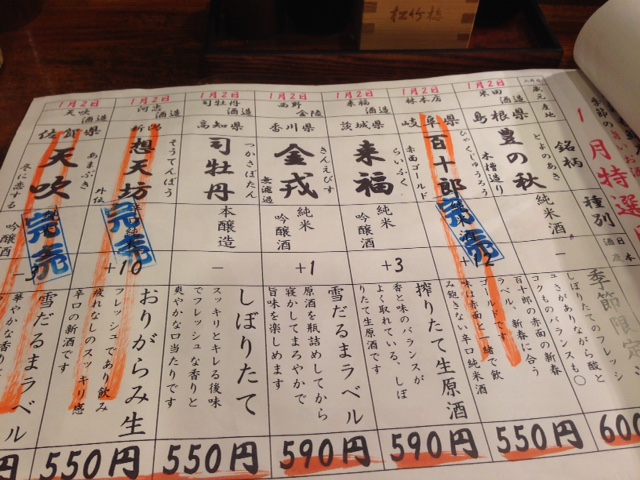 松竹梅
月特選
蔵元
産地
銘柄
種別
1月2日
米田
酒造
島根県
とよのあき
豊の秋
純米酒
季節限定
しぼりたてのフレッシ
ュさがありながら酸と
コクもバランスも○
600
1月2日
林本店
岐阜県
ひゃくじゅうろう
百十郎
赤面ゴールド
完売
百十郎の赤面の新春
ラベル、新春に合う
ゴールドです
味は赤面と一緒で飲
み飽きない辛口純米酒
550円
1月2日
来福
酒造
茨城県
らいふく
来福
純米
吟醸酒
+3
搾りたて生原酒
香と味のバランスが
よく取れている、しぼ
りたて生原酒です
590円
1月2日
西野
金陵
香川県
きんえびす
金戎
無濾過
純米
吟醸酒
+1
雪だるまラベル
原酒を瓶詰めしてから
寝かしてまろやかで
旨味を楽しめます
590円
1月2日
司牡丹
酒造
高知県
つかさぼたん
司牡丹
本醸造
−
しぼりたて
スッキリとキレる後味
でフレッシュな香りと
爽やかな口当たりです
550円
1月2日
河忠
酒造
新潟県
そうてんぼう
想天坊
外伝
完売
+10
おりがらみ生
フレッシュであり飲み
疲れなしのスッキリ感
辛口の新酒です
550円
1月2日
天吹
酒造
佐賀県
あまぶき
天吹
冬に恋する
吟醸酒
完売
雪だるまラベル
華やかな香りと
円